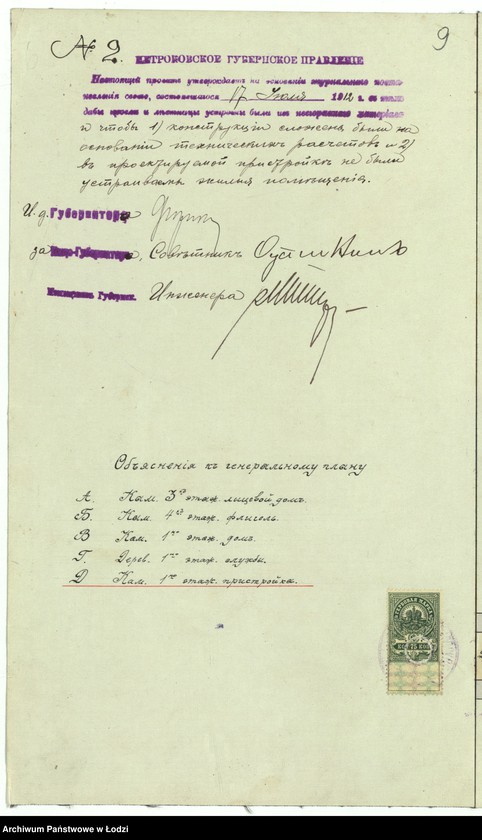 № 2.
9
ПЕТРОКОВСКОЕ ГУБЕРНСКОЕ ПРАВЛЕНІЕ
Настоящій проектъ утверждаетъ на основаніи журнальнаго поста-
новленія своего, состоявшагося 17 Іюля 1912 г. съ тѣмъ
дабы цоколи и лѣстницы устроены были изъ несгораемаго матеріала
и чтобы 1) конструкціи сложены были на
основаніи техническихъ расчетовъ и 2)
въ проектируемой пристройкѣ не были
устраиваемы жилыя помѣщенія.
И. д. Губернатора
за Вице-Губернатора, Совѣтникъ
Губернск. Инженера
Объясненія къ генеральному плану
А. Кам. 3эт этаж. лицевой домъ.
Б. Кам. 4эт этаж. флигель.
В Кам. 1но этаж. домъ.
Г. Дерев. 1но этаж. службы.
Д Кам. 1но этаж. пристройка.
ГЕРБОВАЯ МАРКА
75 КОП
Archiwum Państwowe w Łodzi